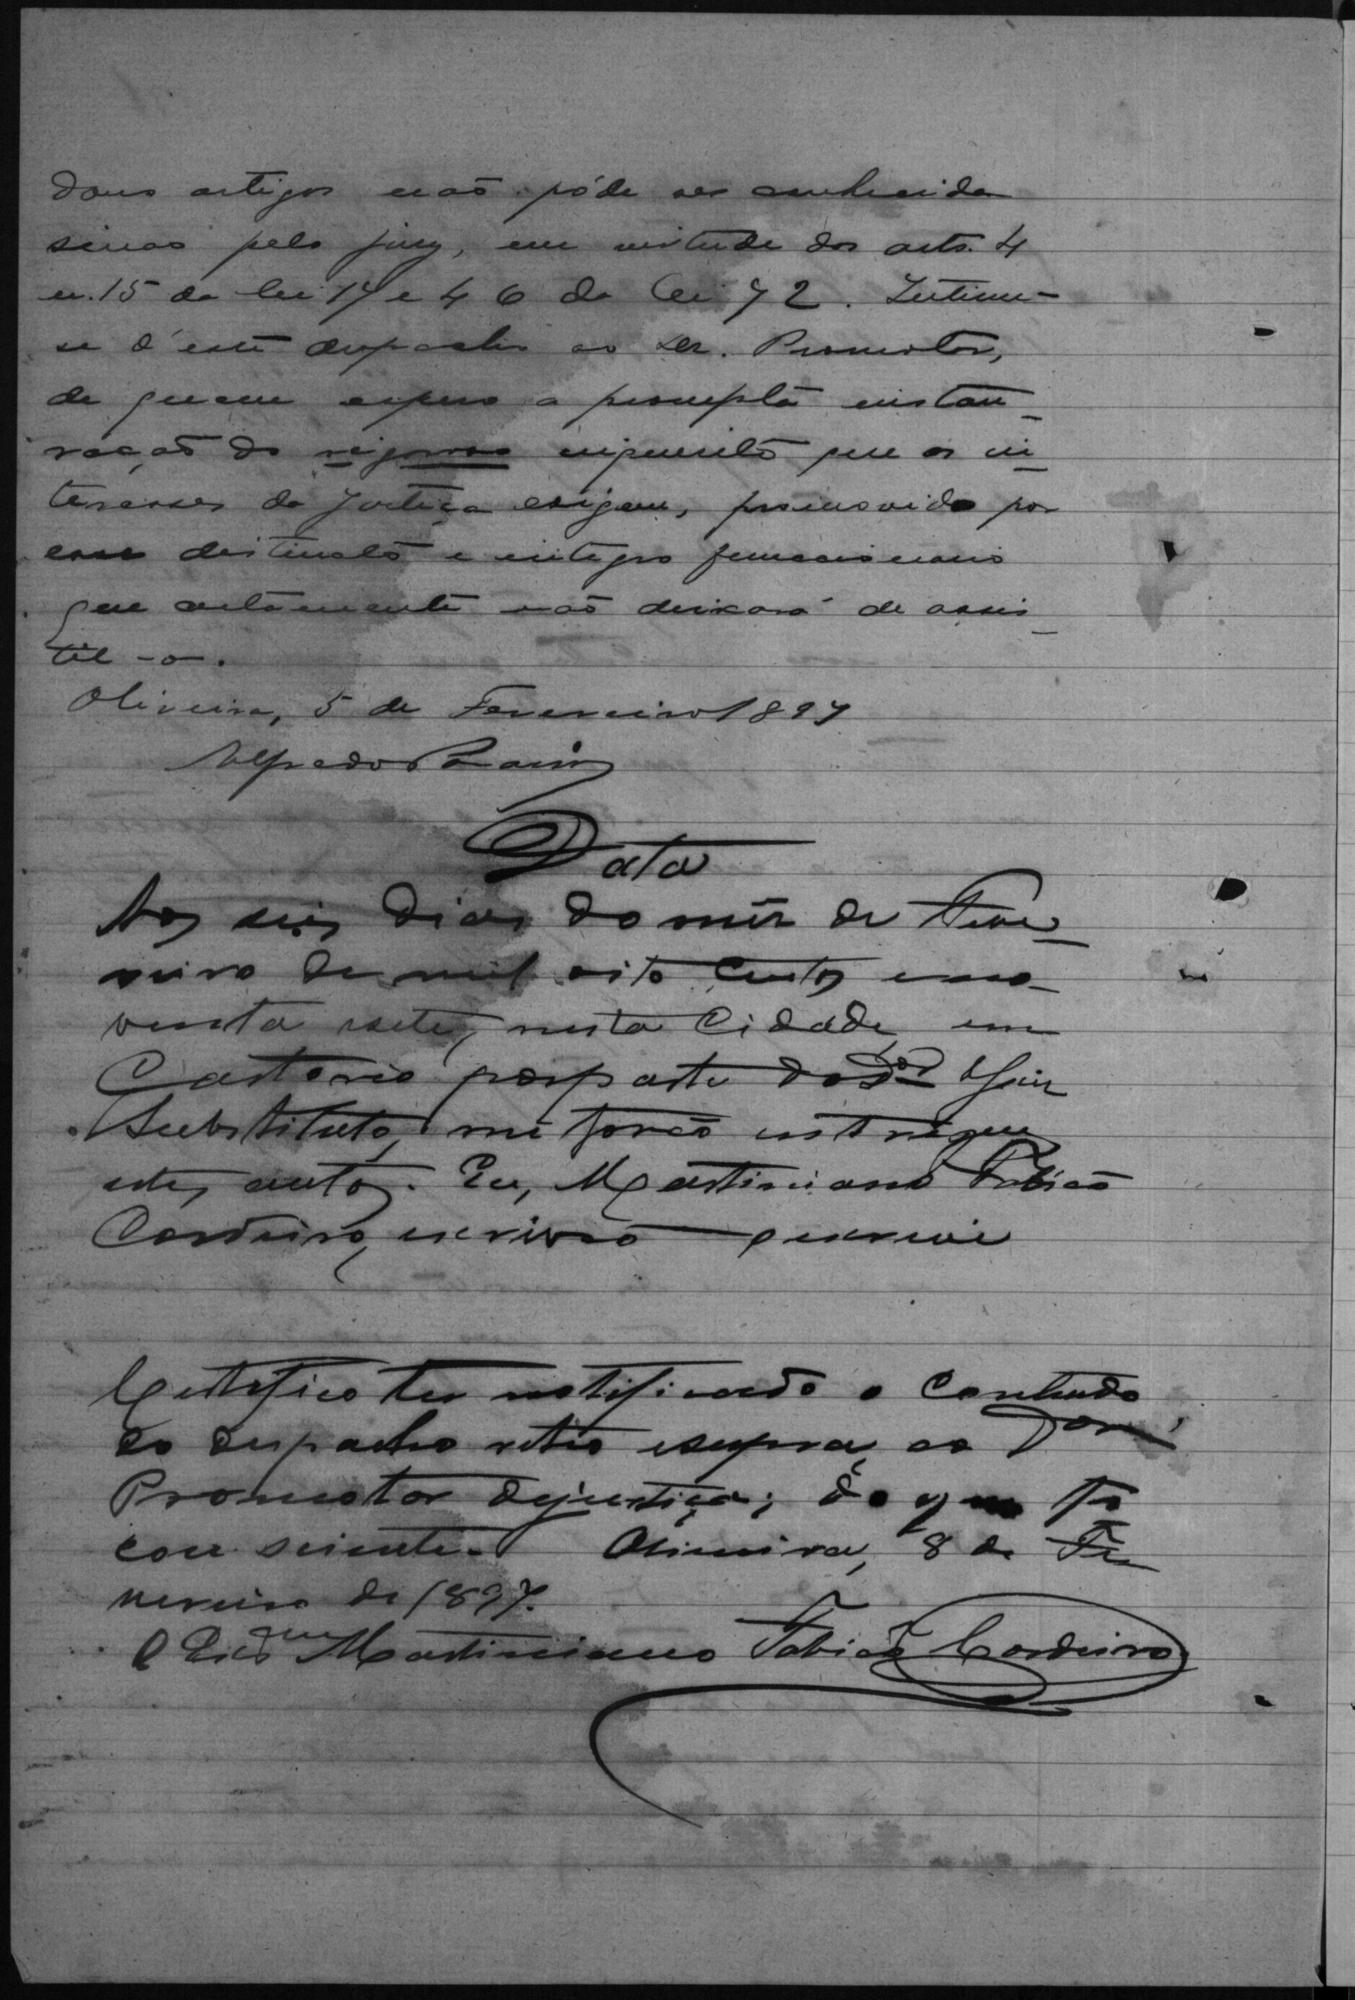 dous artigos não póde ser conhecida
sinão pelo jury, em virtude dos arts. 4
n. 15 da lei 17 e 46 da lei 72. Intime-
se d'este despacho ao Dr. Promotor,
de quem espero a prompta instau-
ração do rigoroso inquerito que os in-
teresses da Justiça exigem, promovido por
esse distincto e integro funccionario
que certamente não deixará de assis-
til-o.
Oliveira, 5 de Fevereiro 1897
Alfredo
Data
Aos seis dias do mês de Feve-
reiro de mil oito centos e no-
venta e sete, nesta Cidade, em
Cartorio por parte do Dor Juiz
Substituto, me forão entregues
estes autos. Eu, Martiniano Fabião
Cordeiro, escrivão escrevi
Certifico ter notificado o contendo
do despacho retro e supra, ao Dor
Promotor dejustiça; do que fi
cou sciente. Oliveira, 8 de Fe
vereiro de 1897.
O Escam Martiniano Fabião Cordeiro